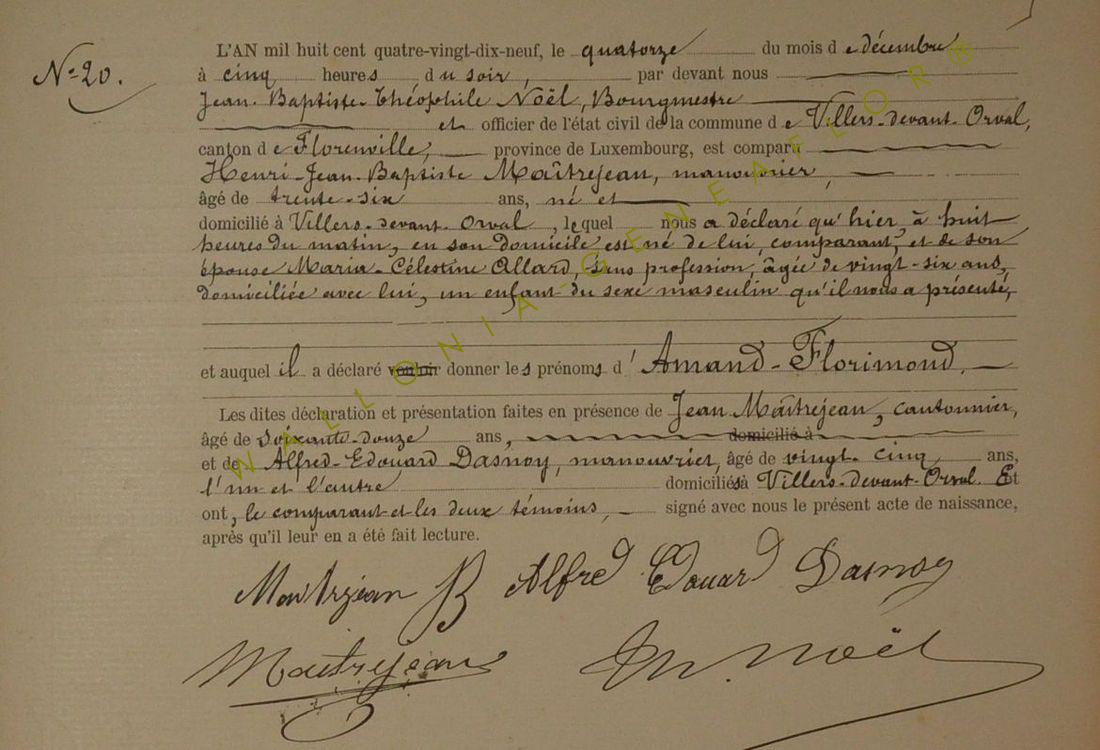 L'AN mil huit cent quatre-vingt-dix-neuf, le quatorze du mois de décembre
No 20.
à cinq heures du soir, par devant nous
Jean-Baptiste-Théophile Noël, Bourgmestre
et officier de l'état civil de la commune de Villers-devant-Orval,
canton de Florenville, province de Luxembourg, est comparu
Henri-Jean-Baptiste Maîtrejean, manouvrier,
âgé de trente-six ans, né et
domicilié à Villers-devant-Orval, lequel nous a déclaré qu'hier, à huit
heures du matin, en son domicile est né de lui, comparant, et de son
épouse Maria-Célestine Allard, sans profession, âgée de vingt-six ans,
domiciliée avec lui, un enfant du sexe masculin qu'il nous a présenté,
et auquel il a déclaré vouloir donner les prénoms d'Amand-Florimond,
Les dites déclaration et présentation faites en présence de Jean Maîtrejean, cantonnier,
âgé de soixante-douze ans, domicilié à
et de Alfred-Edouard Dasnoy, manouvrier, âgé de vingt-cinq ans,
l'un et l'autre domiciliés à Villers-devant-Orval. Et
ont, le comparant et les deux témoins, signé avec nous le présent acte de naissance,
après qu'il leur en a été fait lecture.
Maitrejean B Alfred Edouard Dasnoy
Maitrejean Noël
WALLONIA-GENEAFLOR®